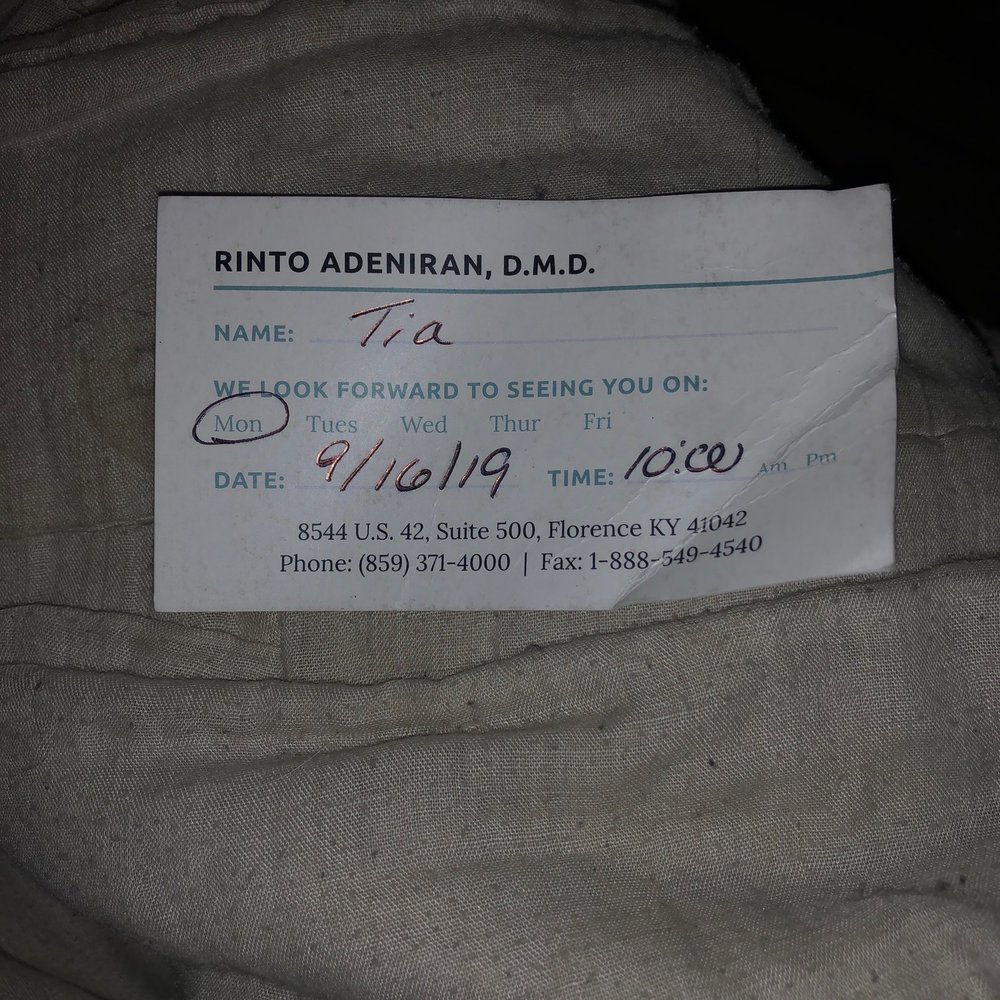 RINTO ADENIRAN, D.M.D.
NAME: Tia
WE LOOK FORWARD TO SEEING YOU ON:
Mon Tues Wed Thur Fri
DATE: 9/16/19 TIME: 10:00 Am Pm
8544 U.S. 42, Suite 500, Florence KY 41042
Phone: (859) 371-4000 | Fax: 1-888-549-4540